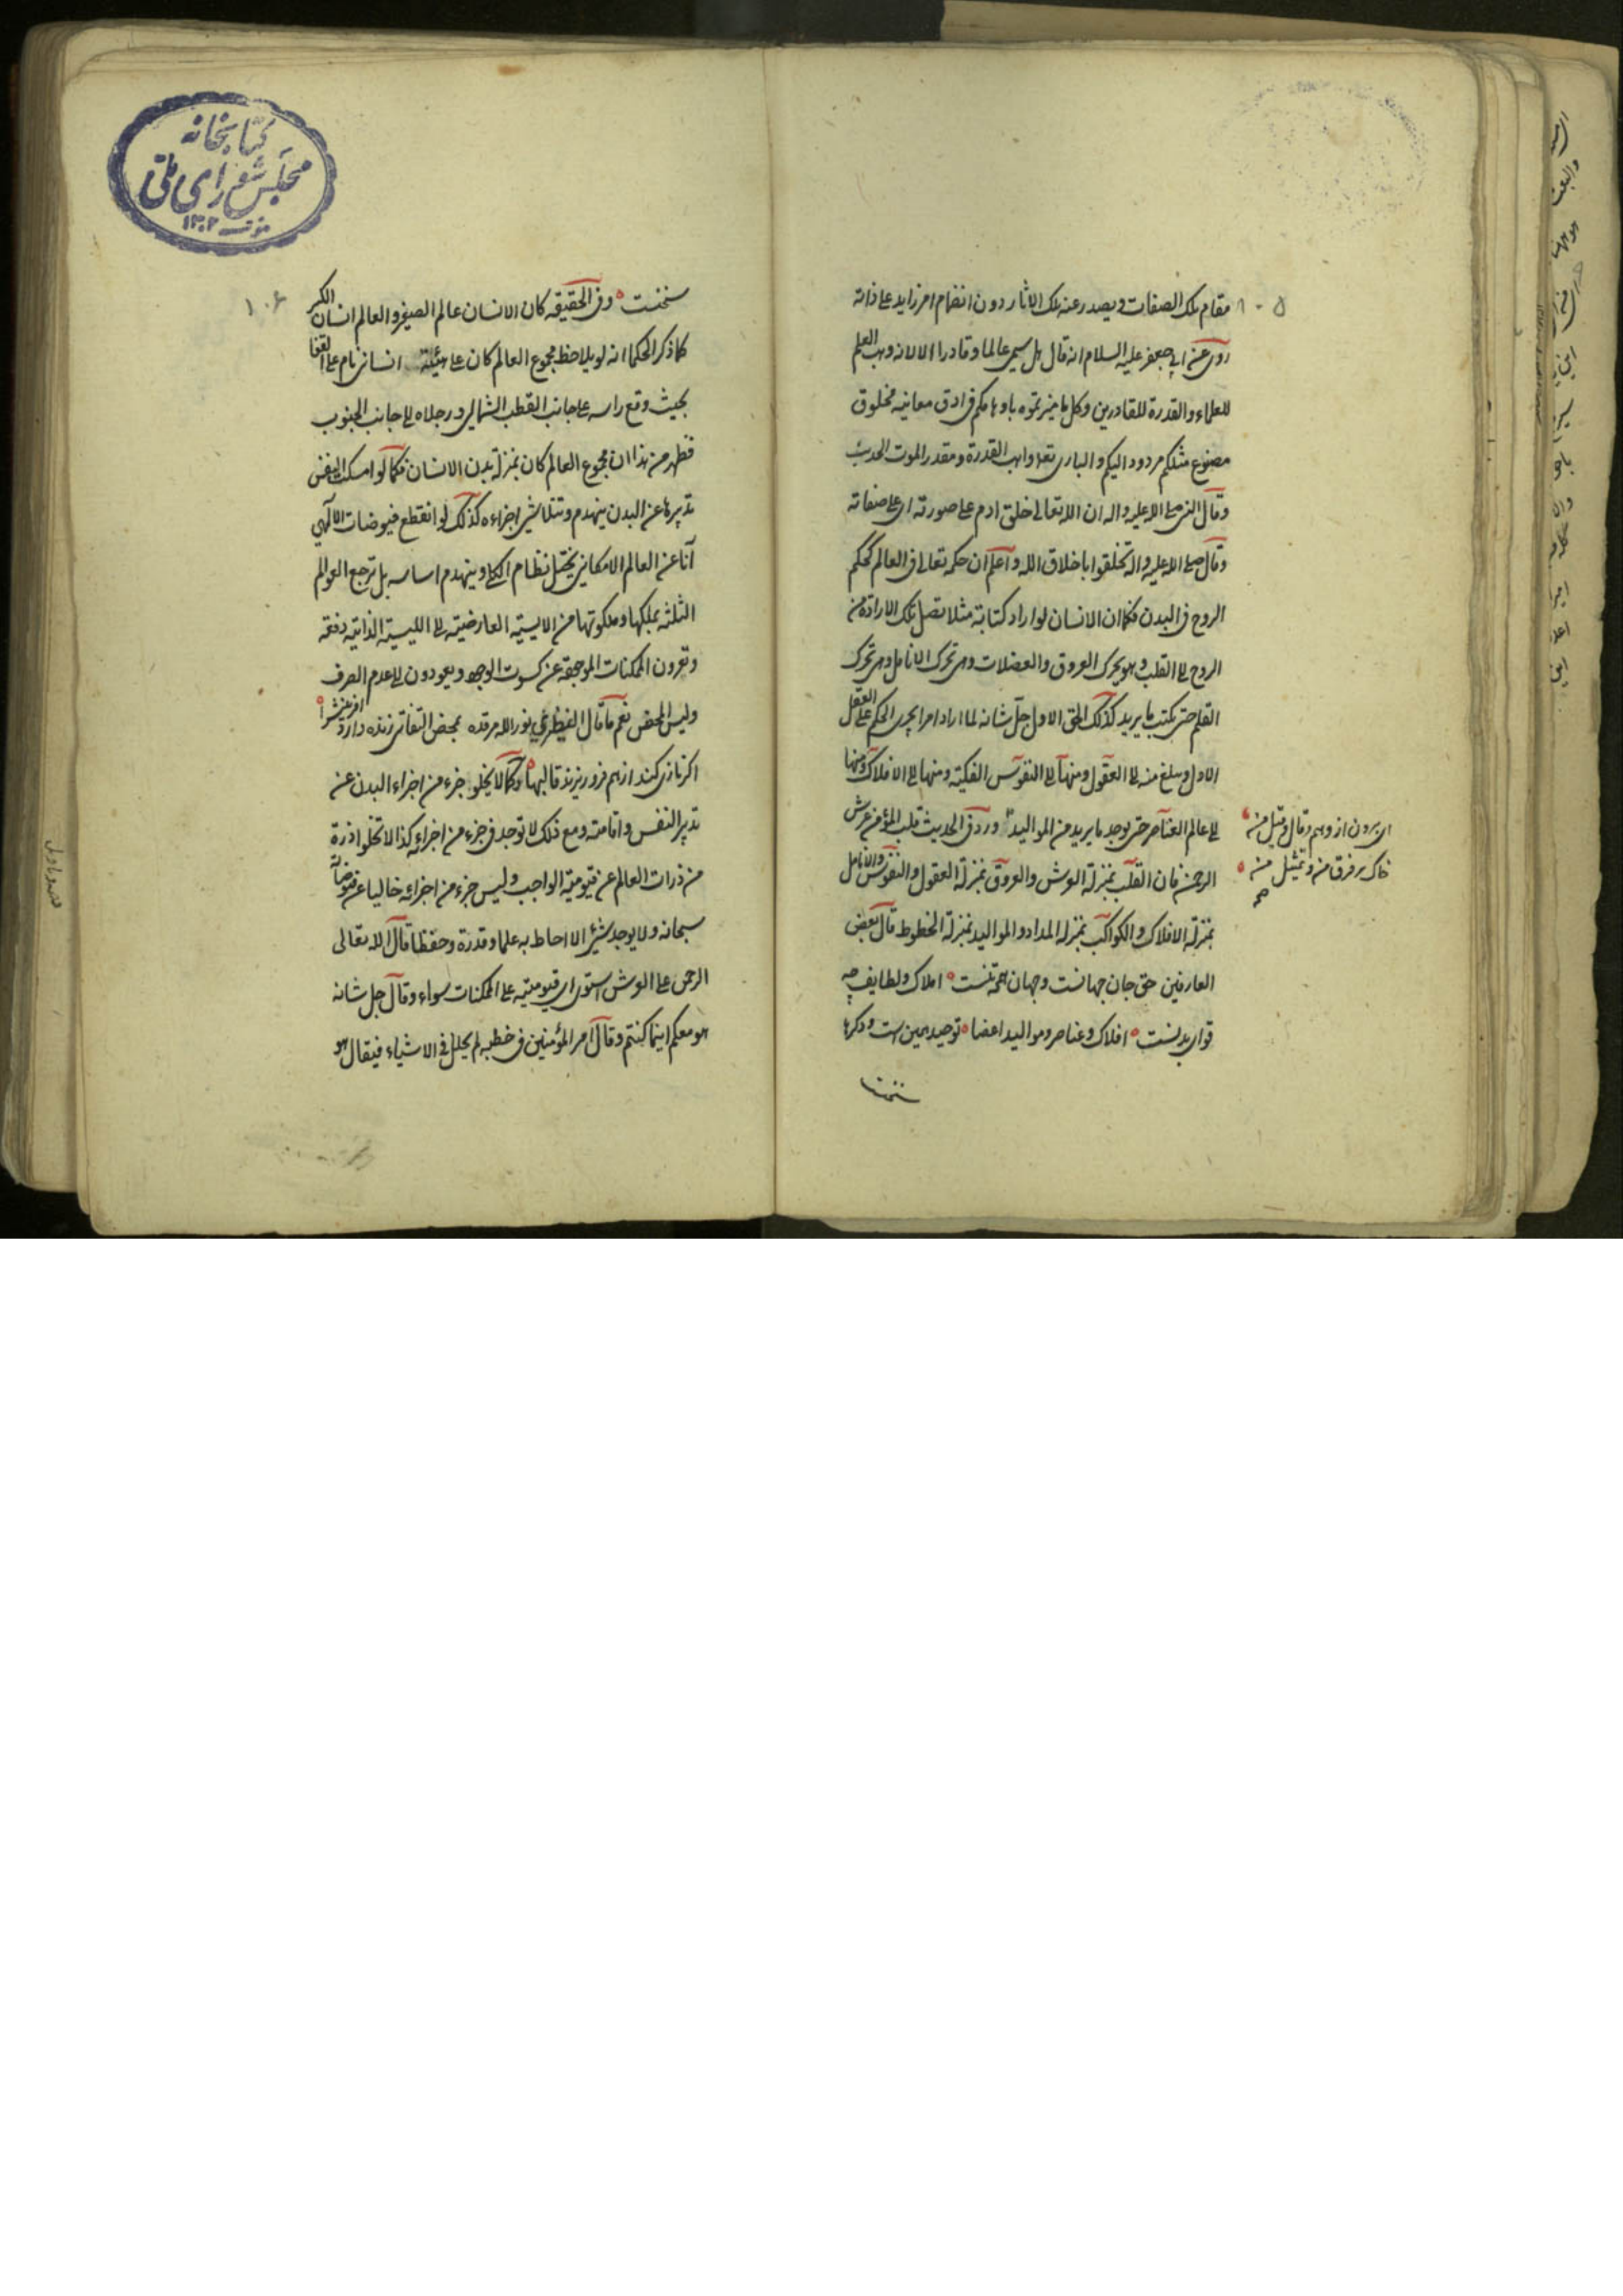 مقام تلك الصفات ويصدر عنه تلك الاثار دون انضمام امر زايد على ذاته
روى عن ابى جعفر عليه السلام انه قال هل سمى عالما وقادرا الا لانه وهب العلم
للعلماء والقدرة للقادرين وكل ما ميزتموه باوهامكم فى ادق معانيه مخلوق
مصنوع مثلكم مردود اليكم والبارى تعالى واهب القدرة ومقدر الموت الحديث
وقال النبى صلى الله عليه واله ان الله تعالى خلق ادم على صورته اى على صفاته
وقال صلى الله عليه واله تخلقوا باخلاق الله واعلم ان حكمه تعالى فى العالم كحكم
الروح فى البدن فكما ان الانسان لو اراد كتابة مثلا تصل تلك الارادة من
الروح الى القلب وهو يحرك العروق والعضلات وهى تحرك الانامل وهى تحرك
القلم حتى يكتب ما يريد كذلك الحق الاول جل شانه لما اراد امرا يجرى الحكم على العقل
الاول ويبلغ منه الى العقول ومنها الى النفوس الفلكية ومنها الى الافلاك ومنها
الى عالم العناصر حتى يوجد ما يريد من المواليد ورد فى الحديث قلب المؤمن عرش
الرحمن فان القلب بمنزلة العرش والعروق بمنزلة العقول والنفوس والانامل
بمنزلة الافلاك والكواكب بمنزلة المداد والمواليد بمنزلة الخطوط قال بعض
العارفين حق جان جهانست وجهان همه تنست املاك ولطايف چه
قواى بدنست افلاك وعناصر ومواليد اعضا توحيد همين است ودكرها
اى برون از وهم وقال وقيل من
خاك بر فرق من وتمثيل من
١٠٥
كتابخانه
مجلس شوراى ملى
١٣٠٢
١٠۶
وفى الحقيقه كان الانسان عالم الصغير والعالم انسان الكبير
كما ذكر الحكما انه لو يلاحظ مجموع العالم كان على هيئة انسانى نام على القفا
بحيث وقع راسه على جانب القطب الشمالى ورجلاه الى جانب الجنوب
فظهر من هذا ان مجموع العالم كان بمنزلة بدن الانسان فكما لو امسكت النفس
تدبيرها عن البدن ينهدم وتتلاشى اجزاءه كذلك لو انقطع فيوضات الالهى
آنا عن العالم الامكانى يختل نظام الكل وينهدم اساسه بل ترجع العوالم
الثلثة بملكها وملكوتها من الايسية العارضية الى الليسية الذاتية دفعة
وتعرون الممكنات الموجودة عن كسوت الوجود ويعودون الى عدم الصرف
وليس المحض نعم ما قال نور الله مرقده بمحض التفاتى زنده دارد افرينش را
اكر نازى كند از هم فرو ريزند قالبها وكما لا يخلو جزء من اجزاء البدن عن
تدبير النفس واقامته ومع ذلك لا توجد فى جزء من اجزاءه كذا لا تخلوا ذرة
من ذرات العالم عن قيومية الواجب وليس جزء من اجزائه خاليا عن فيوضاته
سبحانه ولا يوجد شئ الا احاط به علما وقدرة وحفظا قال الله تعالى
الرحمن على العرش استوى اى قيوميته على الممكنات سواء وقال جل شانه
هو معكم اينما كنتم وقال امير المؤمنين فى خطبه لم يحلل فى الاشياء فيقال هو